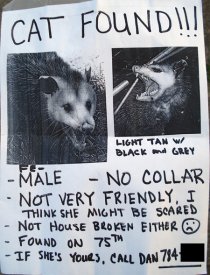 CAT FOUND!!!
LIGHT TAN W/
BLACK AND GREY
FE-
- MALE - NO COLLAR
- NOT VERY FRIENDLY, I
THINK SHE MIGHT BE SCARED
- NOT HOUSE BROKEN EITHER
- FOUND ON 75TH
- IF SHE'S YOURS, CALL DAN 784